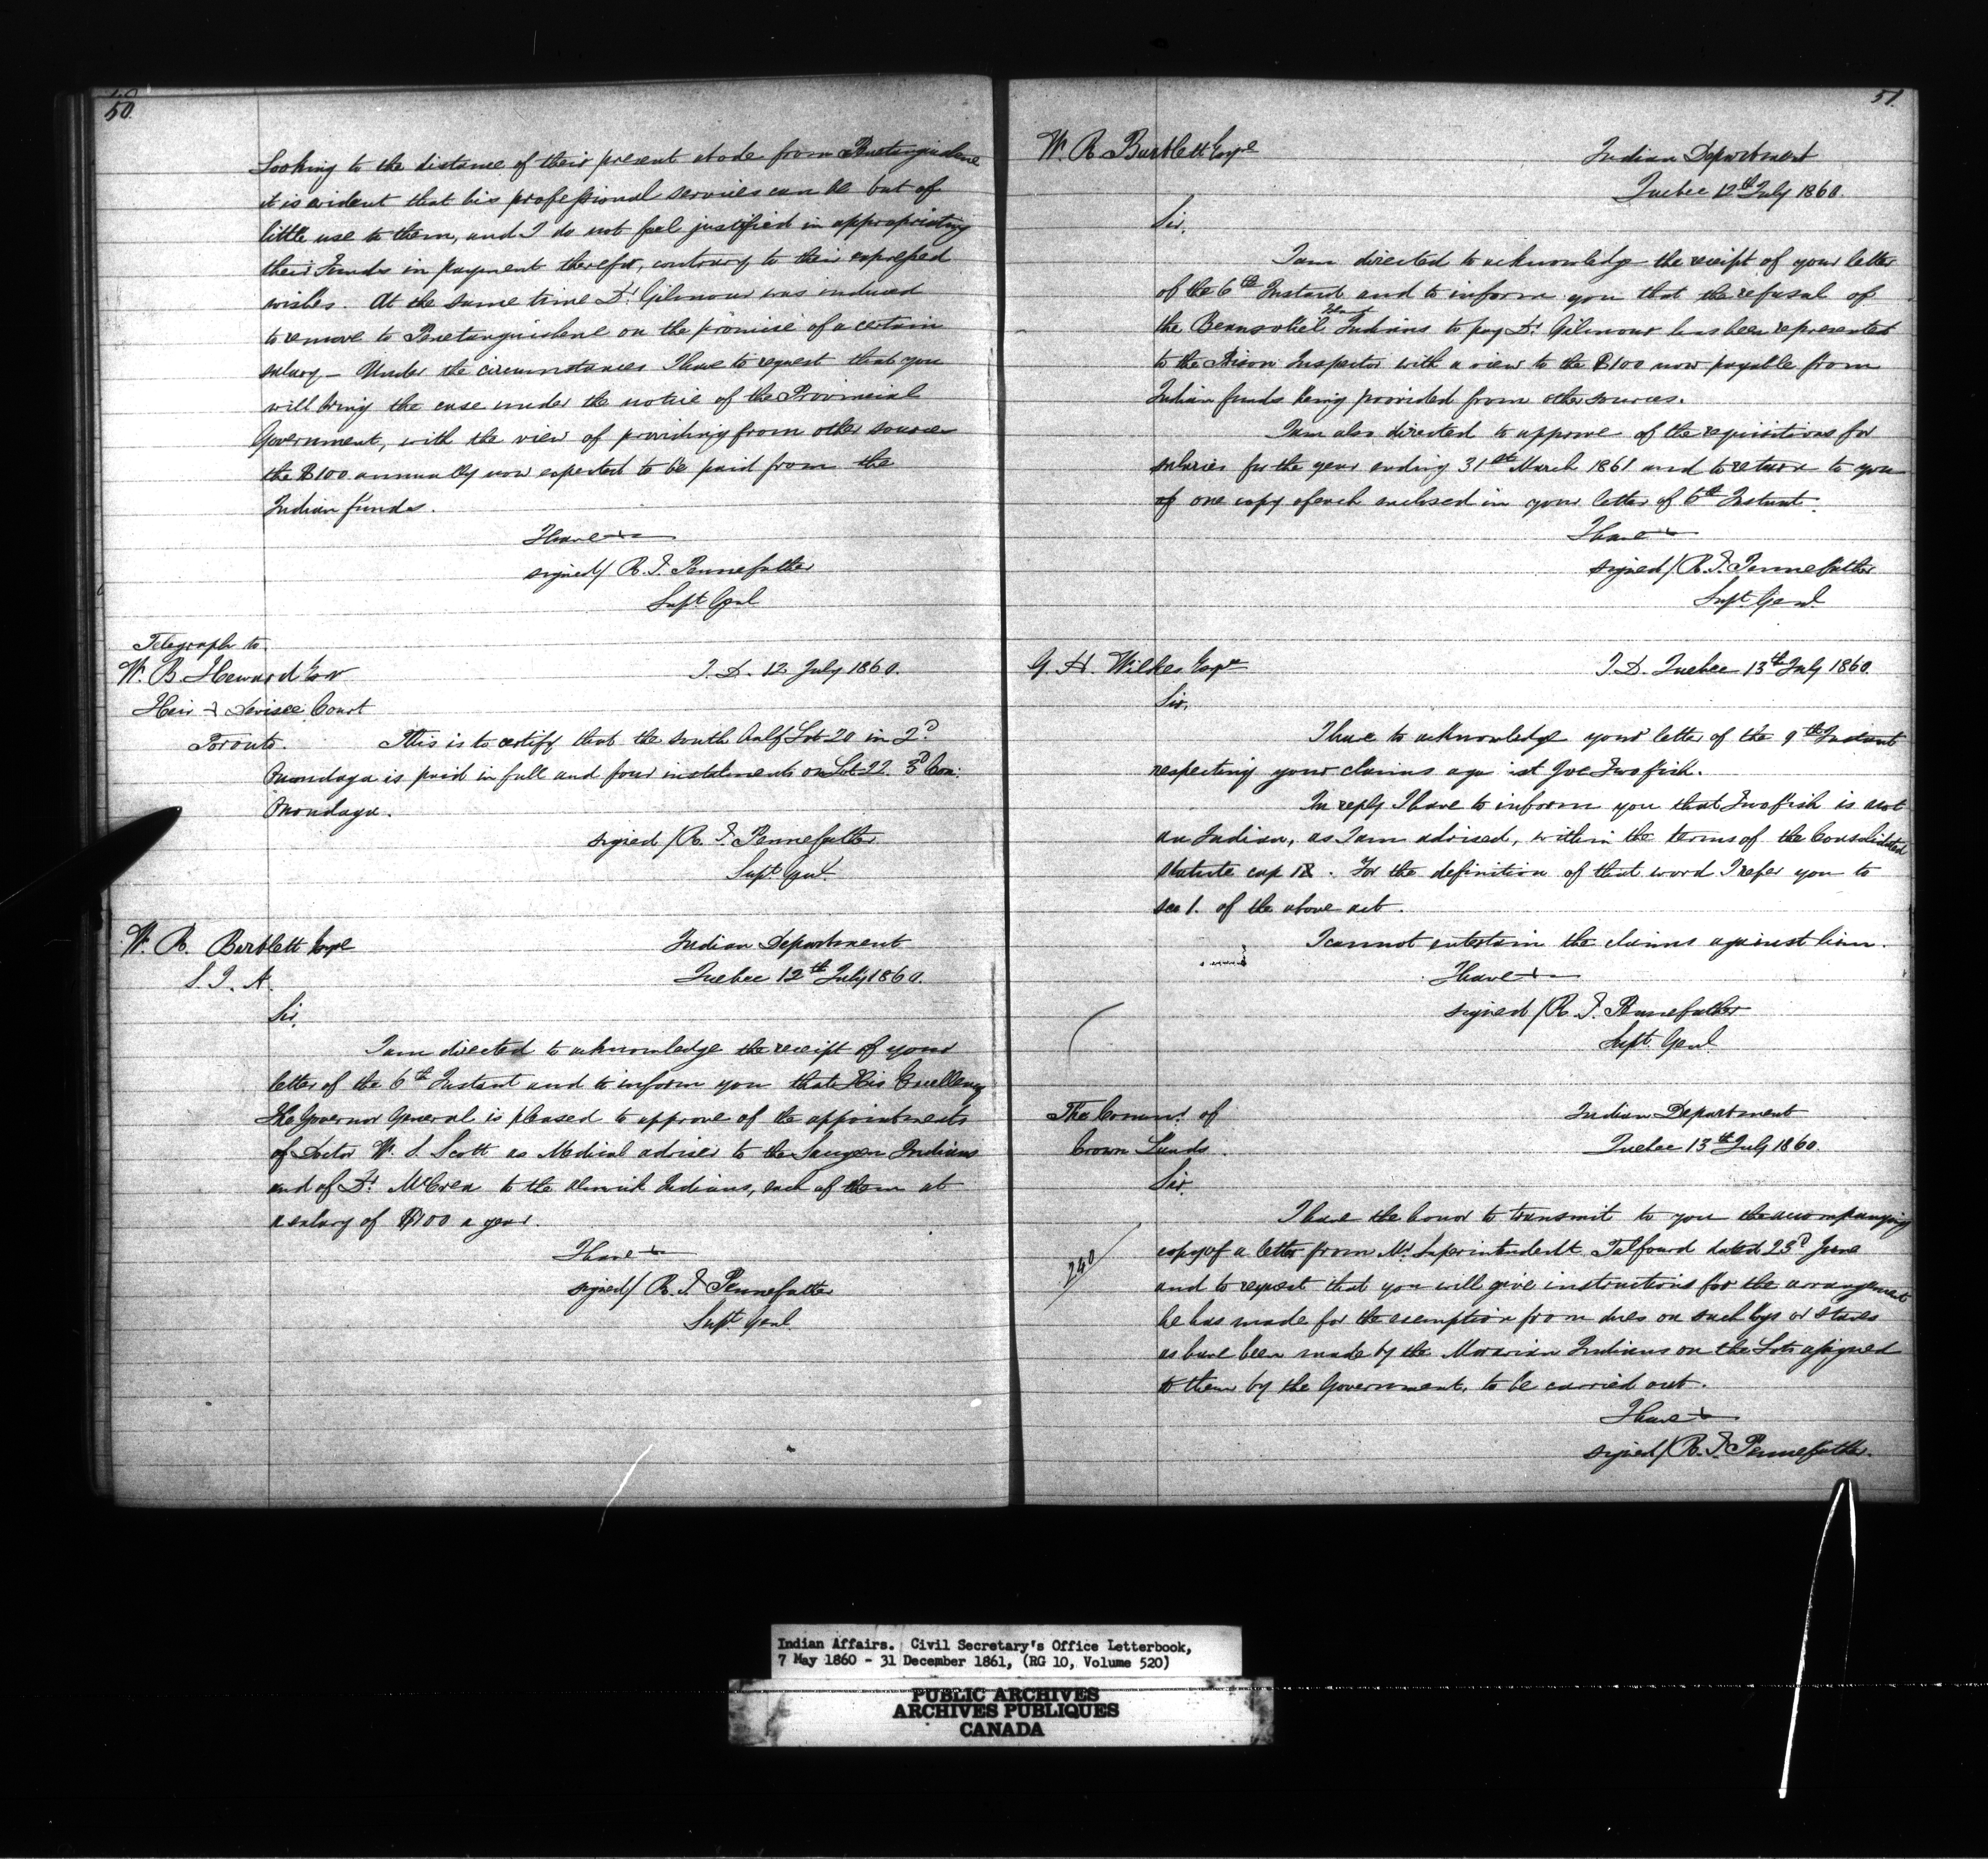 50
Looking to the distance of their present abode from Penetanguishene
it is evident that his professional services can be but of
little use to them, and I do not feel justified in appropriating
their Funds in payment therefor, contrary to their expressed
wishes. At the same time Dr Gilmour was induced
to remove to Penetanguishene on the promise of a certain
salary - Under the circumstances I have to request that you
will bring the case under the notice of the Provincial
Government, with the view of providing from other sources
the $100 annually now expected to be paid from the
Indian funds.
I have &c
signed/ R. T. Pennefather
Supt Genl
Telegraph to
W. B. Heward Esqr
I. D. 12 July 1860.
Heir & Devisee Court
Toronto. This is to certify that the south half Lot 20 in 2d
Onondaga is paid in full and four instalments on Lot 22. 3d Con:
Onondaga.
signed / R. T. Pennefather
Supt Genl
W. R. Bartlett Esqre
S. I. A.
Indian Department
Quebec 12th July 1860.
Sir,
I am directed to acknowledge the receipt of your
letter of the 6th Instant and to inform you that His Excellency
the Governor General is pleased to approve of the appointments
of Doctor W. S. Scott as Medical adviser to the Saugeen Indians
and of Dr McCrea to the Alnwick Indians, each of them at
a salary of $100 a year.
I have &c
signed/ R. T. Pennefather
Supt Genl.
51.
W. R. Bartlett Esqre
Indian Department
Quebec 12th July 1860.
Sir,
I am directed to acknowledge the receipt of your letter
of the 6th Instant and to inform you that the refusal of
the Beausoliel Island Indians to pay Dr Gilmour has been represented
to the Prison Inspector with a view to the $100 now payable from
Indian funds being provided from other sources.
I am also directed to approve of the requisitions for
salaries for the year ending 31st March 1861 and to return to you
of one copy of each enclosed in your letter of 6th Instant.
I have &c
signed / R. T. Pennefather
Supt Genl
G. H. Wilkes Esqre
I. D. Quebec 13th July 1860.
Sir,
I have to acknowledge your letter of the 9th Instant
respecting your claims agaist Joe Twofish.
In reply I have to inform you that Twofish is not
an Indian, as I am advised, within the terms of the Consolidated
Statute cap . For the definition of that word I refer you to
sec 1. of the above act.
I cannot entertain the claims against him.
I have &c
signed / R. T. Pennefather
Supt Genl
The Commr of
Crown Lands.
Indian Department
Quebec 13th July 1860.
Sir,
I have the honor to transmit to you the accompanying
240
copy of a letter from Mr Superintendent Talfourd dated 23d June
and to request that you will give instructions for the arrangement
he has made for the exemption from dues on such logs or staves
as have been made by the Moravian Indians on the Lots assigned
to them by the Government, to be carried out.
I have &c
signed / R. T. Pennefather.
Indian Affairs. Civil Secretary's Office Letterbook,
7 May 1860 - 31 December 1861, (RG 10, Volume 520)
PUBLIC ARCHIVES
ARCHIVES PUBLIQUES
CANADA